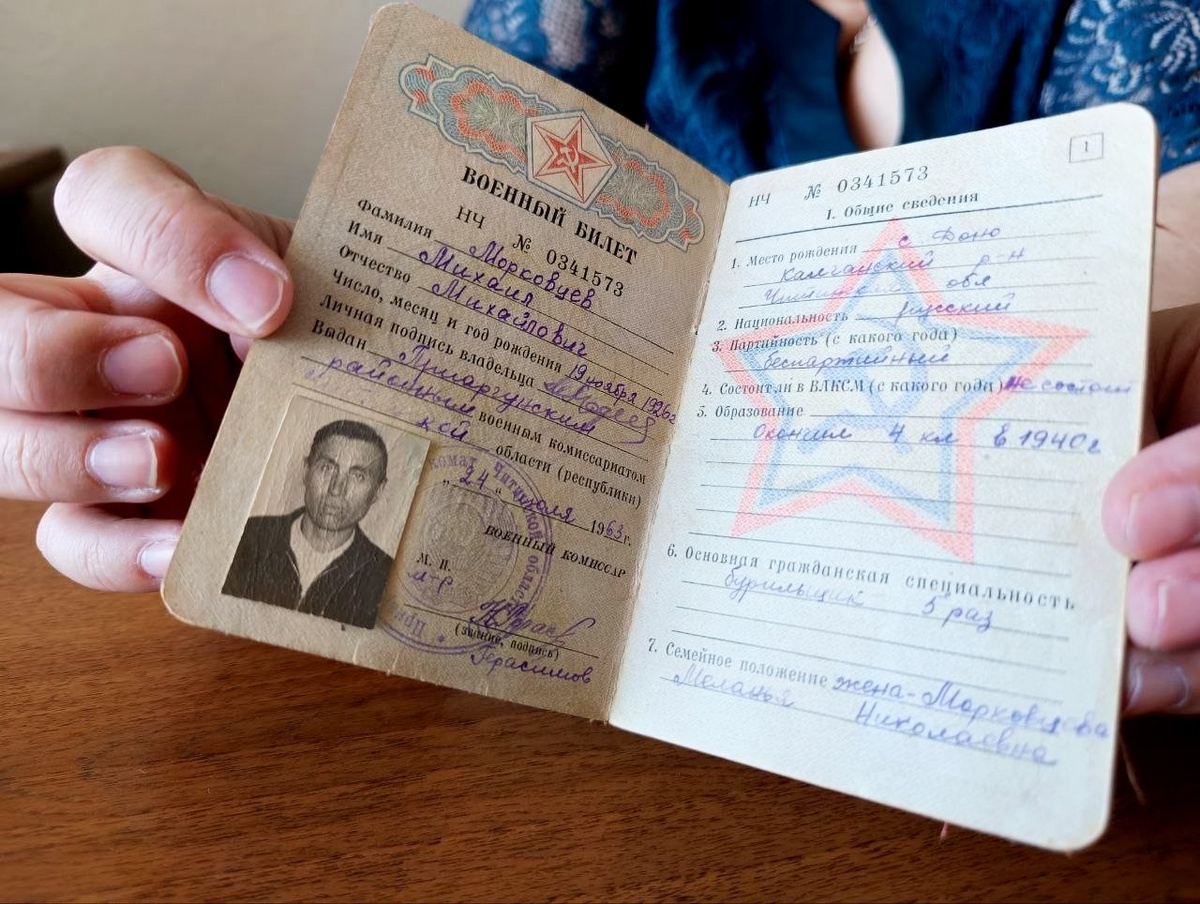 ВОЕННЫЙ БИЛЕТ
НЧ № 0341573
Фамилия Морковцев
Имя Михаил
Отчество Михайлович
Число, месяц и год рождения 19 ноября 1926г
Личная подпись владельца
Выдан Приаргунский
районным военным комиссариатом
кой области (республики)
„24“ июля 1963г.
ВОЕННЫЙ КОМИССАР
М. П.
м-р
(звание, подпись)
Герасимов
1
НЧ № 0341573
1. Общие сведения
1. Место рождения с Доно
Калганский р-н
обл
2. Национальность русский
3. Партийность (с какого года)
беспартийный
4. Состоял ли в ВЛКСМ (с какого года) Не состоял
5. Образование
Окончил 4 кл в 1940г
6. Основная гражданская специальность
бурильщик 5 раз
7. Семейное положение жена-Морковцева
Меланья Николаевна